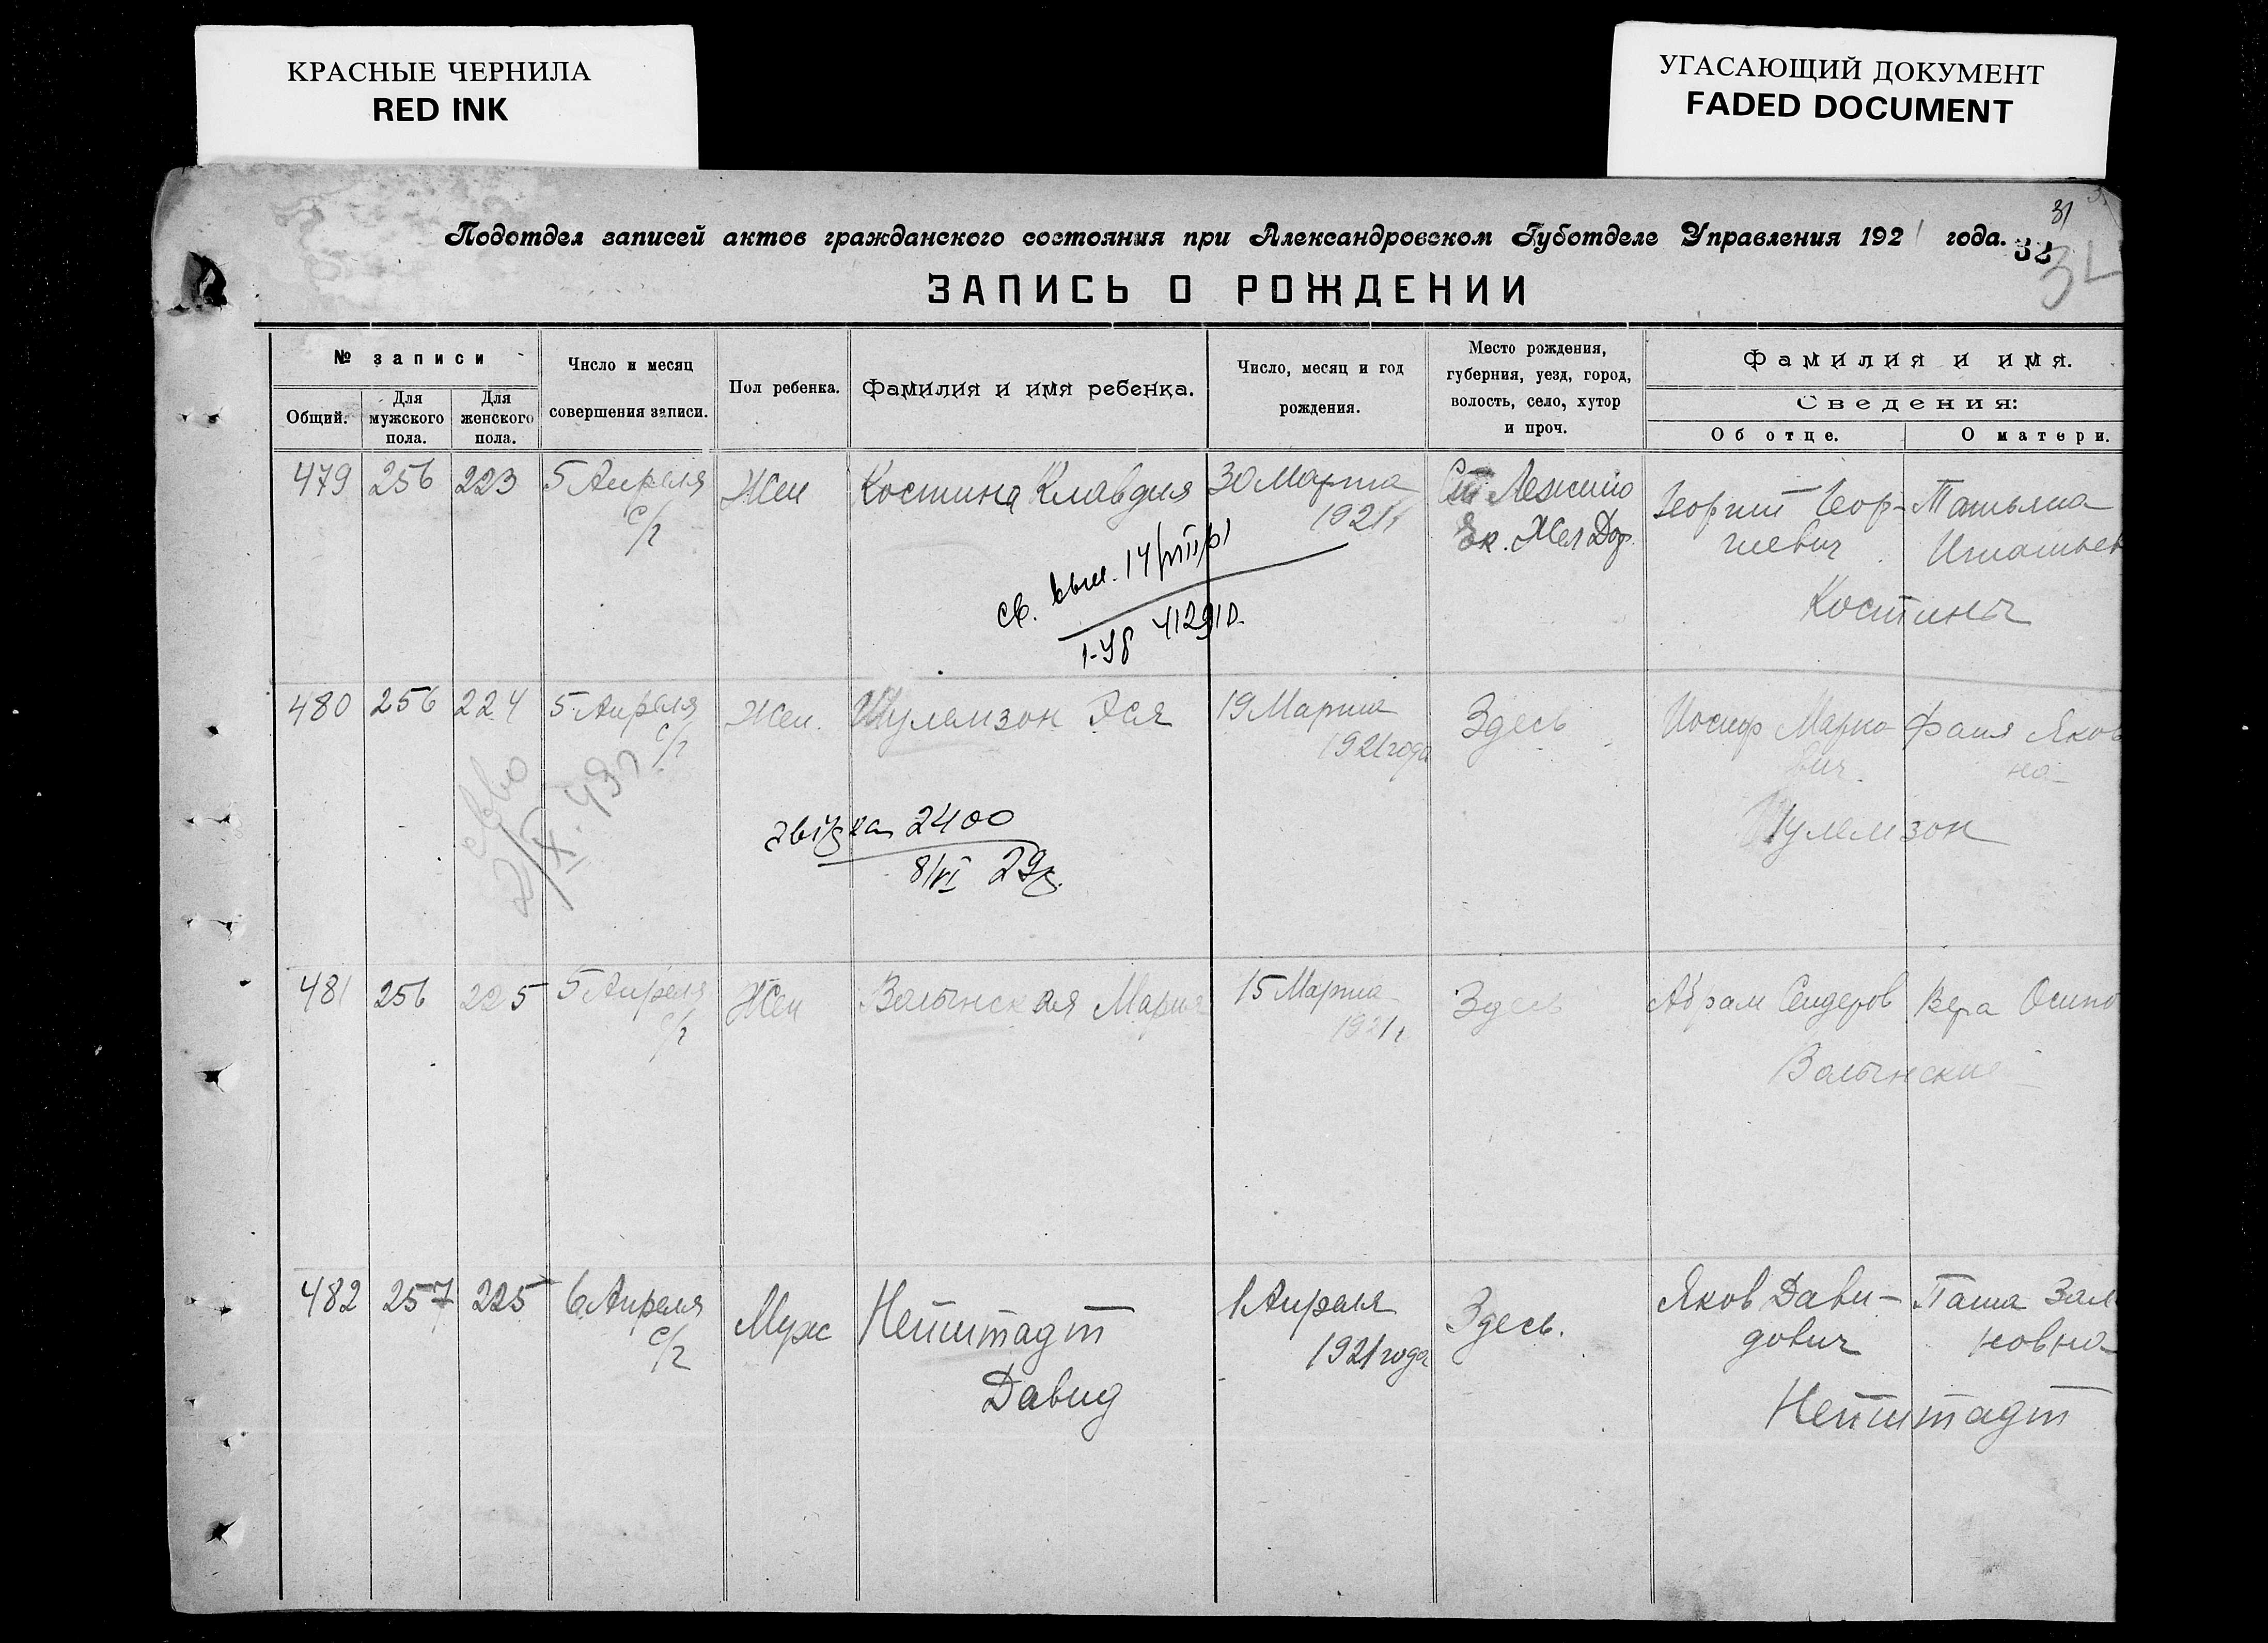 КРАСНЫЕ ЧЕРНИЛА
RED INK
УГАСАЮЩИЙ ДОКУМЕНТ
FADED DOCUMENT
31
Подотдел записей актов гражданского состояния при Александровском Губотделе Управления 1921 года.
32
ЗАПИСЬ О РОЖДЕНИИ
№ записи
Общий.
Для мужского пола.
Для женского пола.
Число и месяц
совершения записи.
Пол ребенка.
Фамилия и имя ребенка.
Число, месяц и год
рождения.
Место рождения,
губерния, уезд, город,
волость, село, хутор
и проч.
Фамилия и имя.
Сведения:
Об отце.
О матери.
479 256 223 5 Апреля Жен Костина Клавдия 30 Марта Ст Георгий Геор- Татьяна
с/г 1921 г Ек. Жел Дор. гиевич
Костины
480 256 224 5 Апреля Жен. Шулемзон Эся 19 Марта Здесь Иосиф Марко Фаня Яков
с/г 1921 года вич. на
Шулемзон
2400
8/VI 29г.
481 256 225 5 Апреля Жен Волынская Мария 15 Марта Здесь Абрам Сендеров Вера Осипо
с/г 1921 г
Волынские
482 257 225 6 Апреля Муж Нейштадт 1 Апреля Здесь. Яков Дави- Паша Зал
с/г Давид 1921 года дович новна
Нейштадт